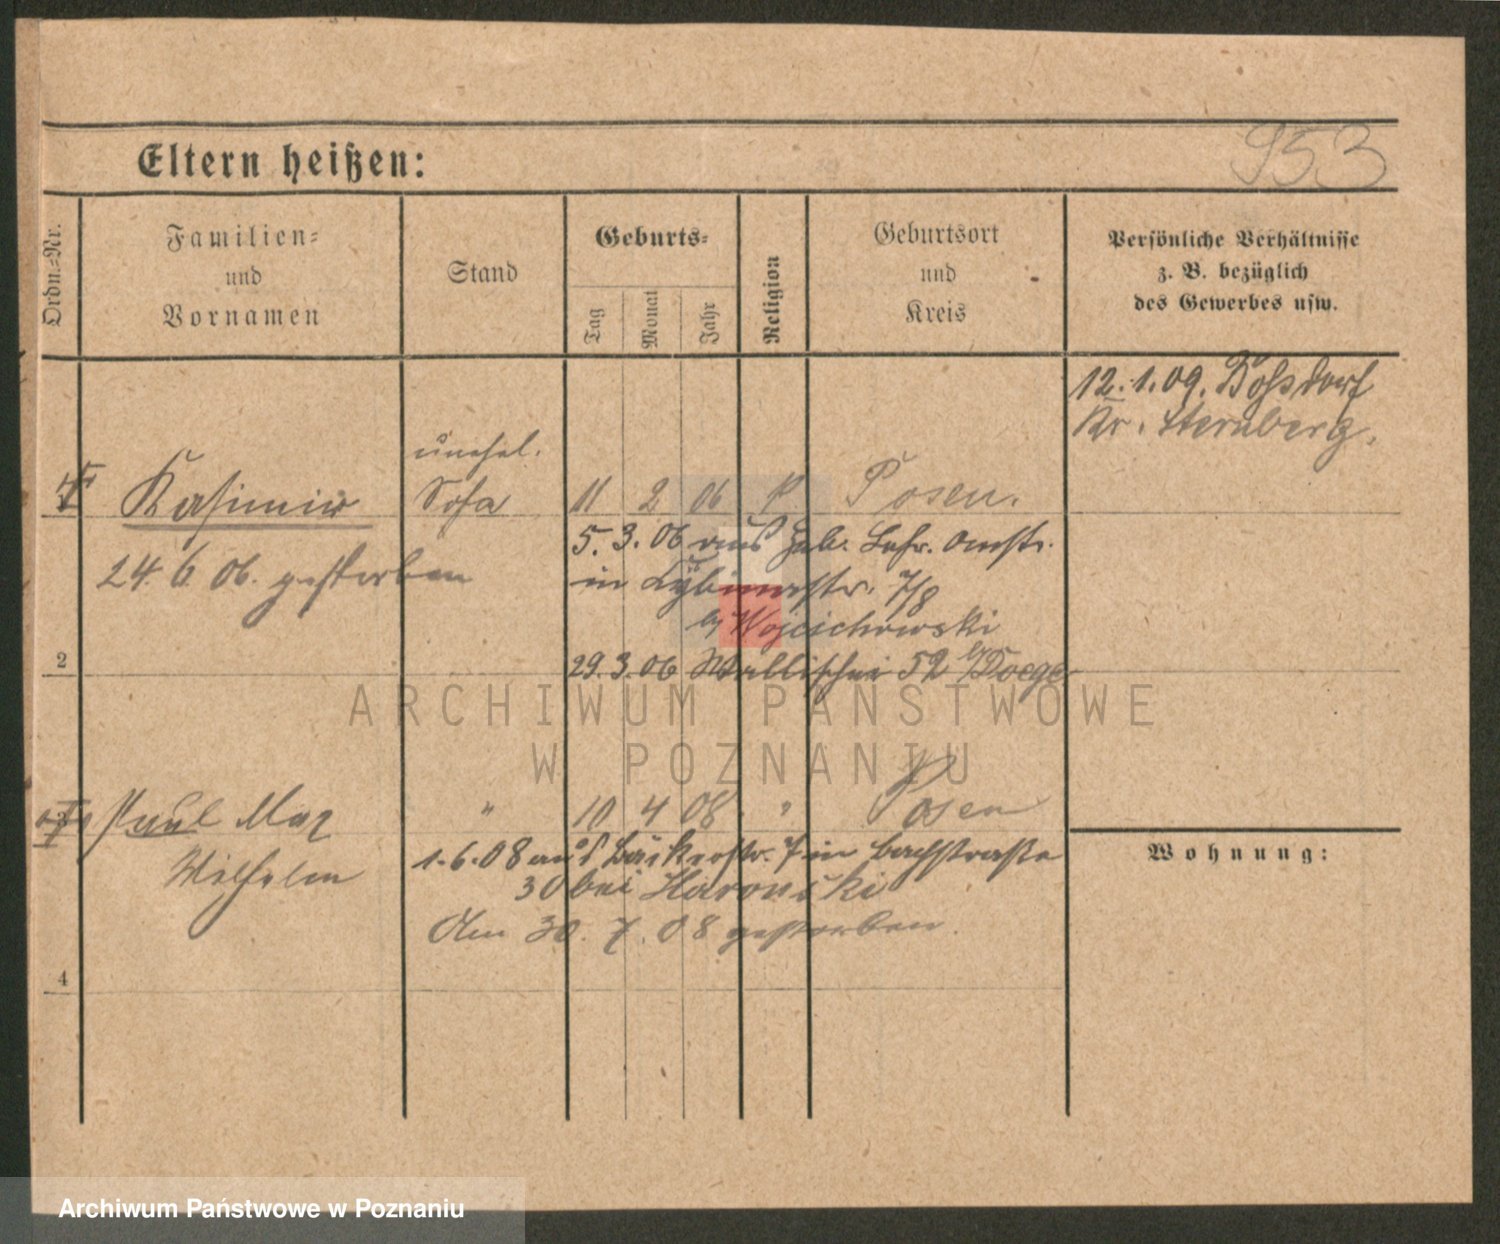 953
Eltern heißen:
Ordn.-Nr.
Familien-
und
Vornamen
Stand
Geburts-
Tag
Monat
Jahr
Religion
Geburtsort
und
Kreis
Persönliche Verhältnisse
z. B. bezüglich
des Gewerbes usw.
12.1.09. Boßdorf
Kr. Sternberg.
unehel.
Kasimir Sohn 11 2 06 K Posen.
24.6.06. gestorben
5.3.06 aus Geb. Lehr. Anst.
in 7/8
b/ Wojcichowski
2
29.3.06 Wallischei 52 b/ Doege
Paul Max " 10 4 08 " Posen
Wilhelm
1.6.08 aus Bäckerstr. 7 in Bachstraße
30 bei
Am 30.7.08 gestorben.
4
Wohnung:
ARCHIWUM PAŃSTWOWE
W POZNANIU
Archiwum Państwowe w Poznaniu